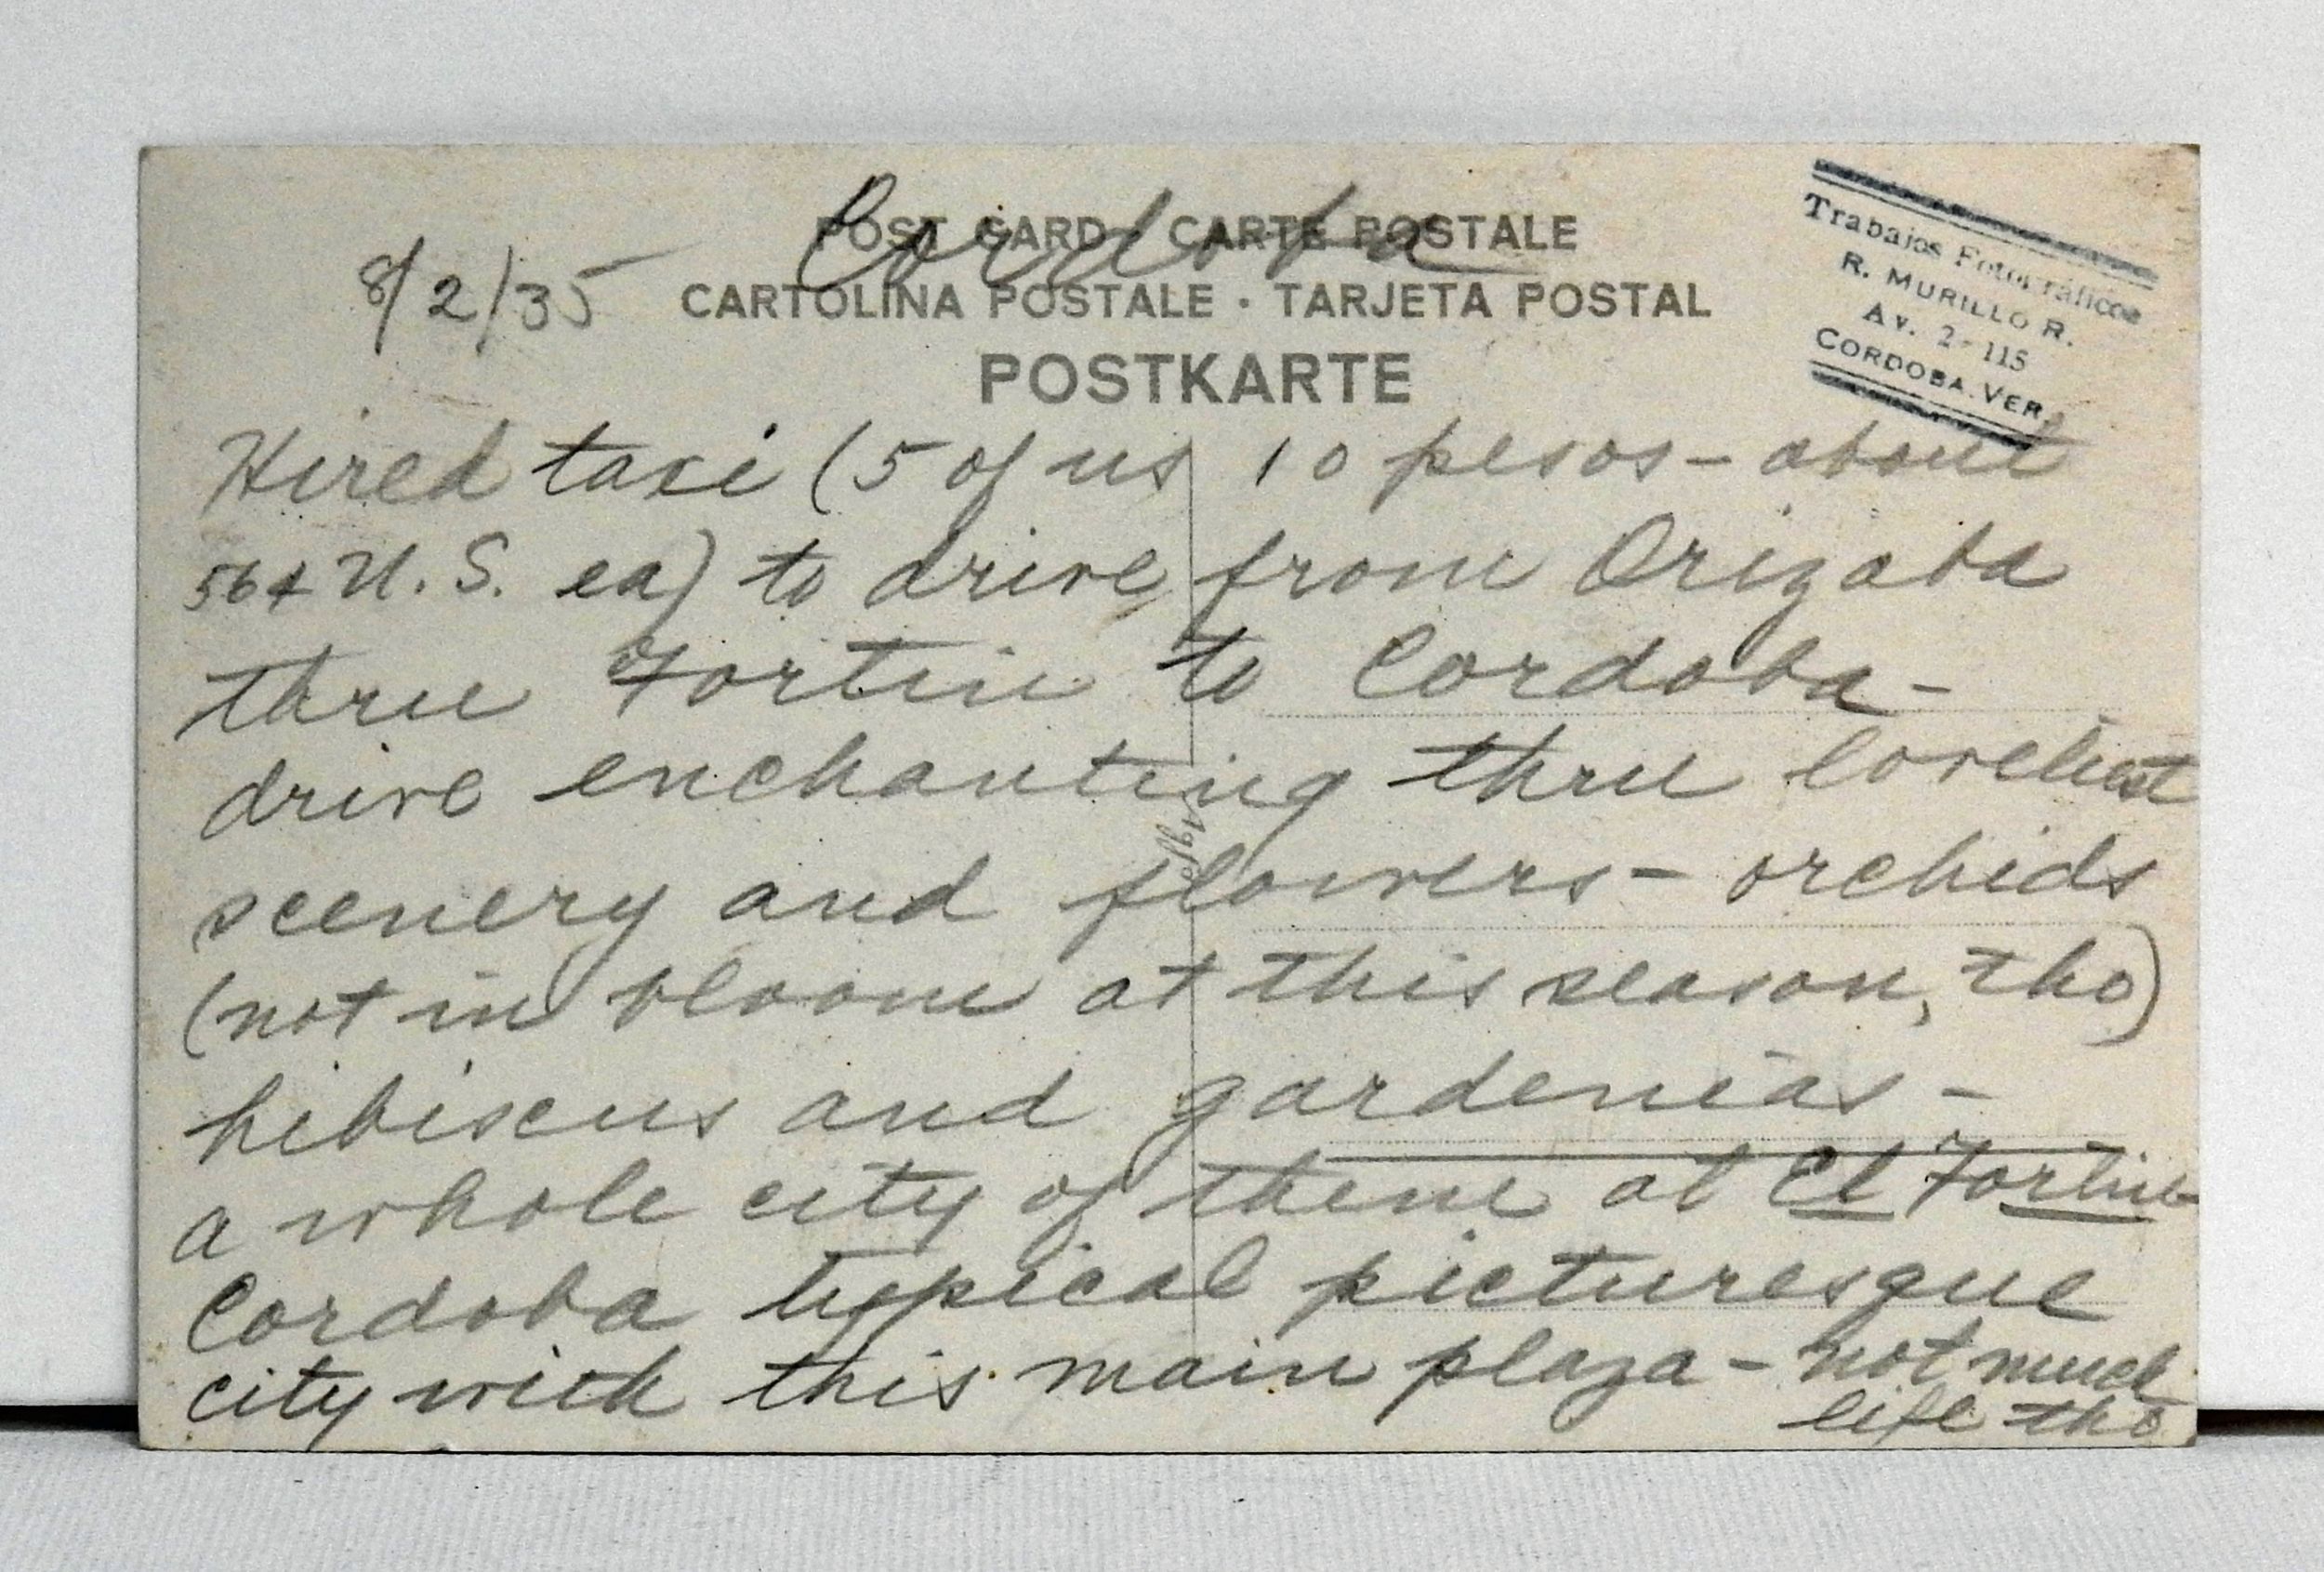 Cordoba
POST CARD · CARTE POSTALE
8/2/35 CARTOLINA POSTALE · TARJETA POSTAL
POSTKARTE
Trabajos Fotográficos
R. MURILLO R.
Av. 2 - 115
CORDOBA. VER.
Hired taxi (5 of us 10 pesos - about
56¢ U.S. ea) to drive from Orizaba
thru Fortin to Cordoba -
drive enchanting thru loveliest
scenery and flowers - orchids
(not in bloom at this season, tho)
hibiscus and gardenias -
a whole city of them at El Fortin
Cordoba typical picturesque
city with this main plaza - not much
life tho